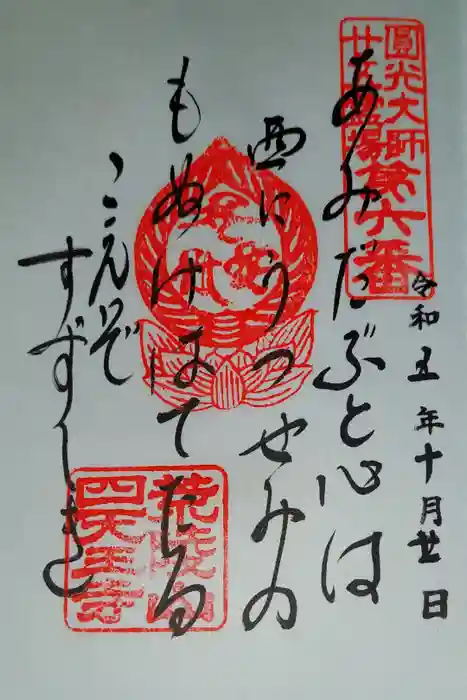 圓光大師
廿五霊場第六番
令和五年十月廿日
あみだぶと心は
西にうつせみの
もぬけはてたる
こえぞ
すずしき
荒陵山
四天王寺